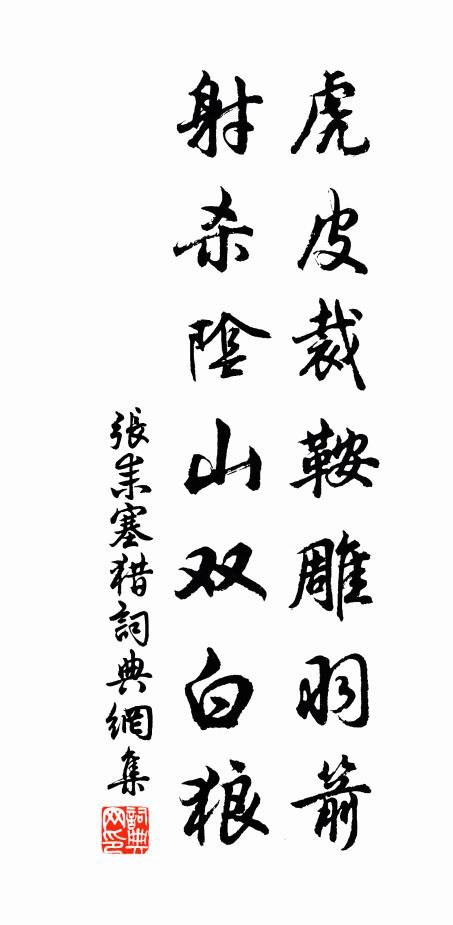 虎皮裁鞍雕羽箭
射杀陰山双白狼
張耒塞猎詞典網集
詞典网印